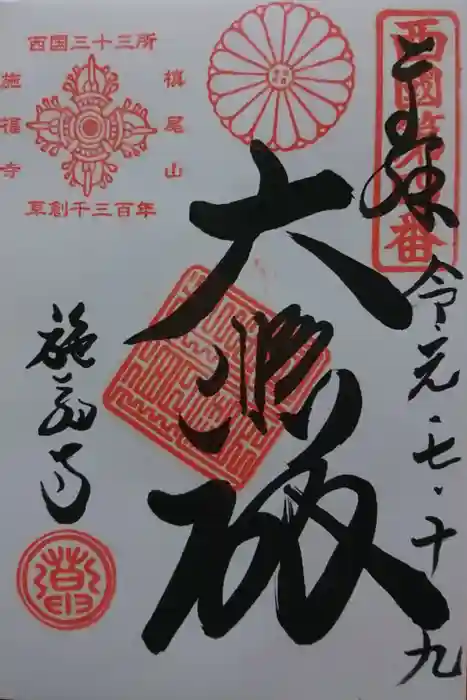 西國第四番
奉拝
令元・七・十九
西国三十三所
槙尾山
施福寺
草創千三百年
大悲殿
施福寺